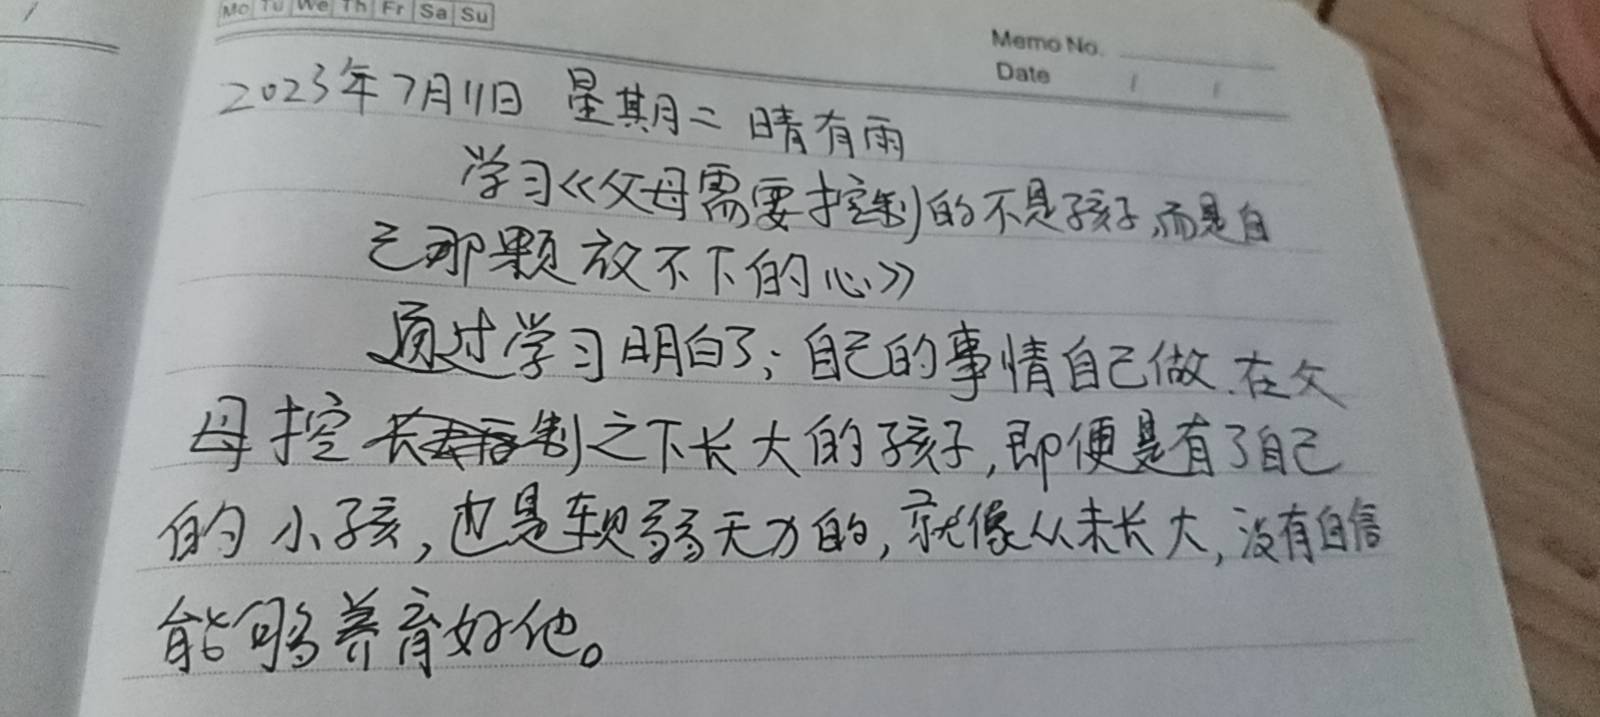 Mo Tu We Th Fr Sa Su
Memo No.
Date / /
2023年7月11日 星期二 晴有雨
学习《父母需要控制的不是孩子,而是自
己那颗放不下的心》
通过学习明白了;自己的事情自己做.在父
母控制之下长大的孩子,即便是有了自己
的小孩,也是软弱无力的,就像从未长大,没有自信
能够养育好他。